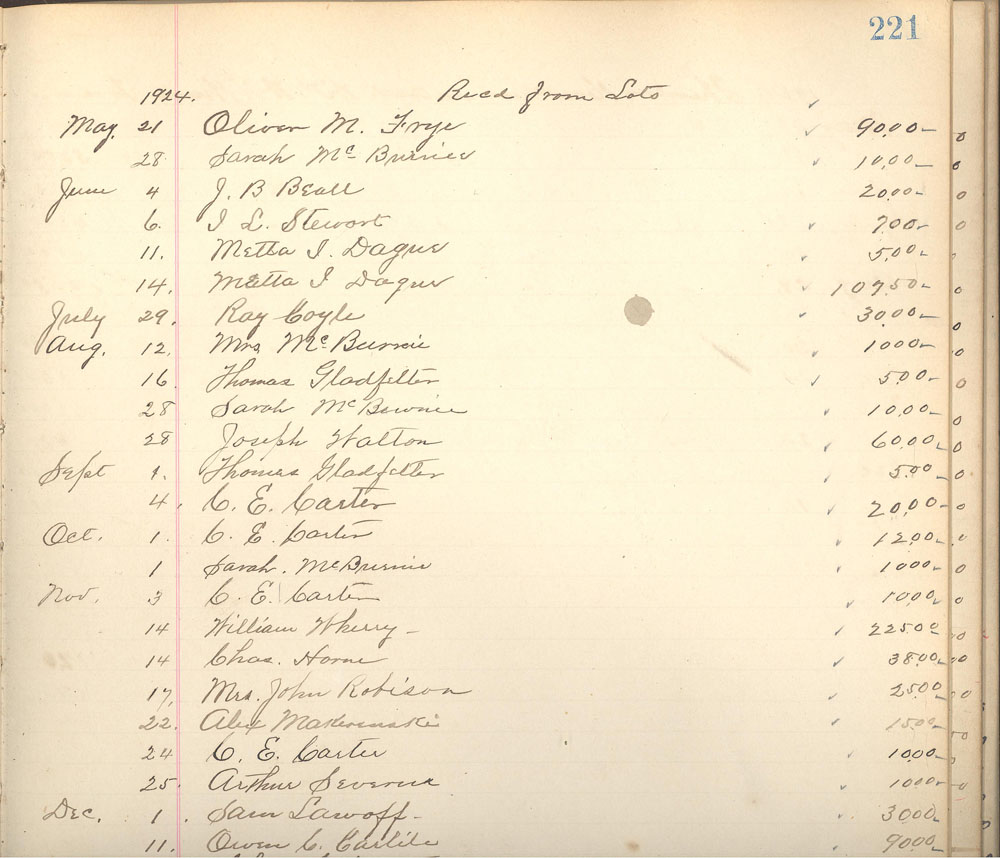 221
1924. Recd from Lots
May. 21 Oliver M. Frye 90.00
28 Sarah Mc Burnie 10.00
June 4 J. B Beall 20.00
6. I L. Stewart 7.00
11. Metta I. Dague 5.00
14. Metta I Dague 107.50
July 29. Ray Coyle 30.00
Aug. 12. Mrs Mc Burnie 10.00
16 Thomas Gladfelter 5.00
28 Sarah Mc Burnie 10.00
28 Joseph Walton 60.00
Sept 1. Thomas Gladfelter 5.00
4. C. E. Carter 20.00
Oct. 1. C. E. Carter 12.00
1 Sarah. McBurnie 10.00
Nov. 3 C. E. Carter 10.00
14 William Wherry 225.00
14 Chas. Horne 38.00
17, Mrs. John Robison 25.00
22. Alex 15.00
24 C. E. Carter 10.00
25. Arthur 10.00
Dec. 1. Sam 30.00
11. Owen C. Carlile 90.00